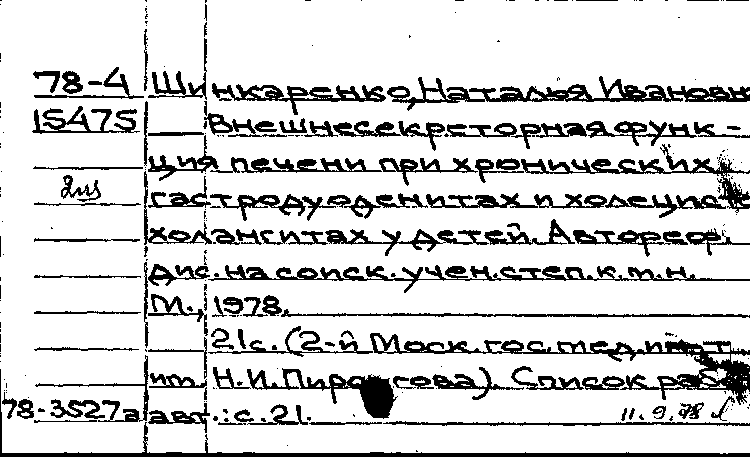 78-4 Шинкаренко, Наталья Ивановн
15475 Внешнесекреторная функ-
ция печени при хронических
гастродуоденитах и холецисто
холангитах у детей. Автореф.
дис. на соиск. учен. степ. к.м.н.
М., 1978.
21с. (2-й Моск. гос. мед. ин-т
им. Н.И.Пирогова). Список раб
78-3527а авт.: с.21. 11.9.78